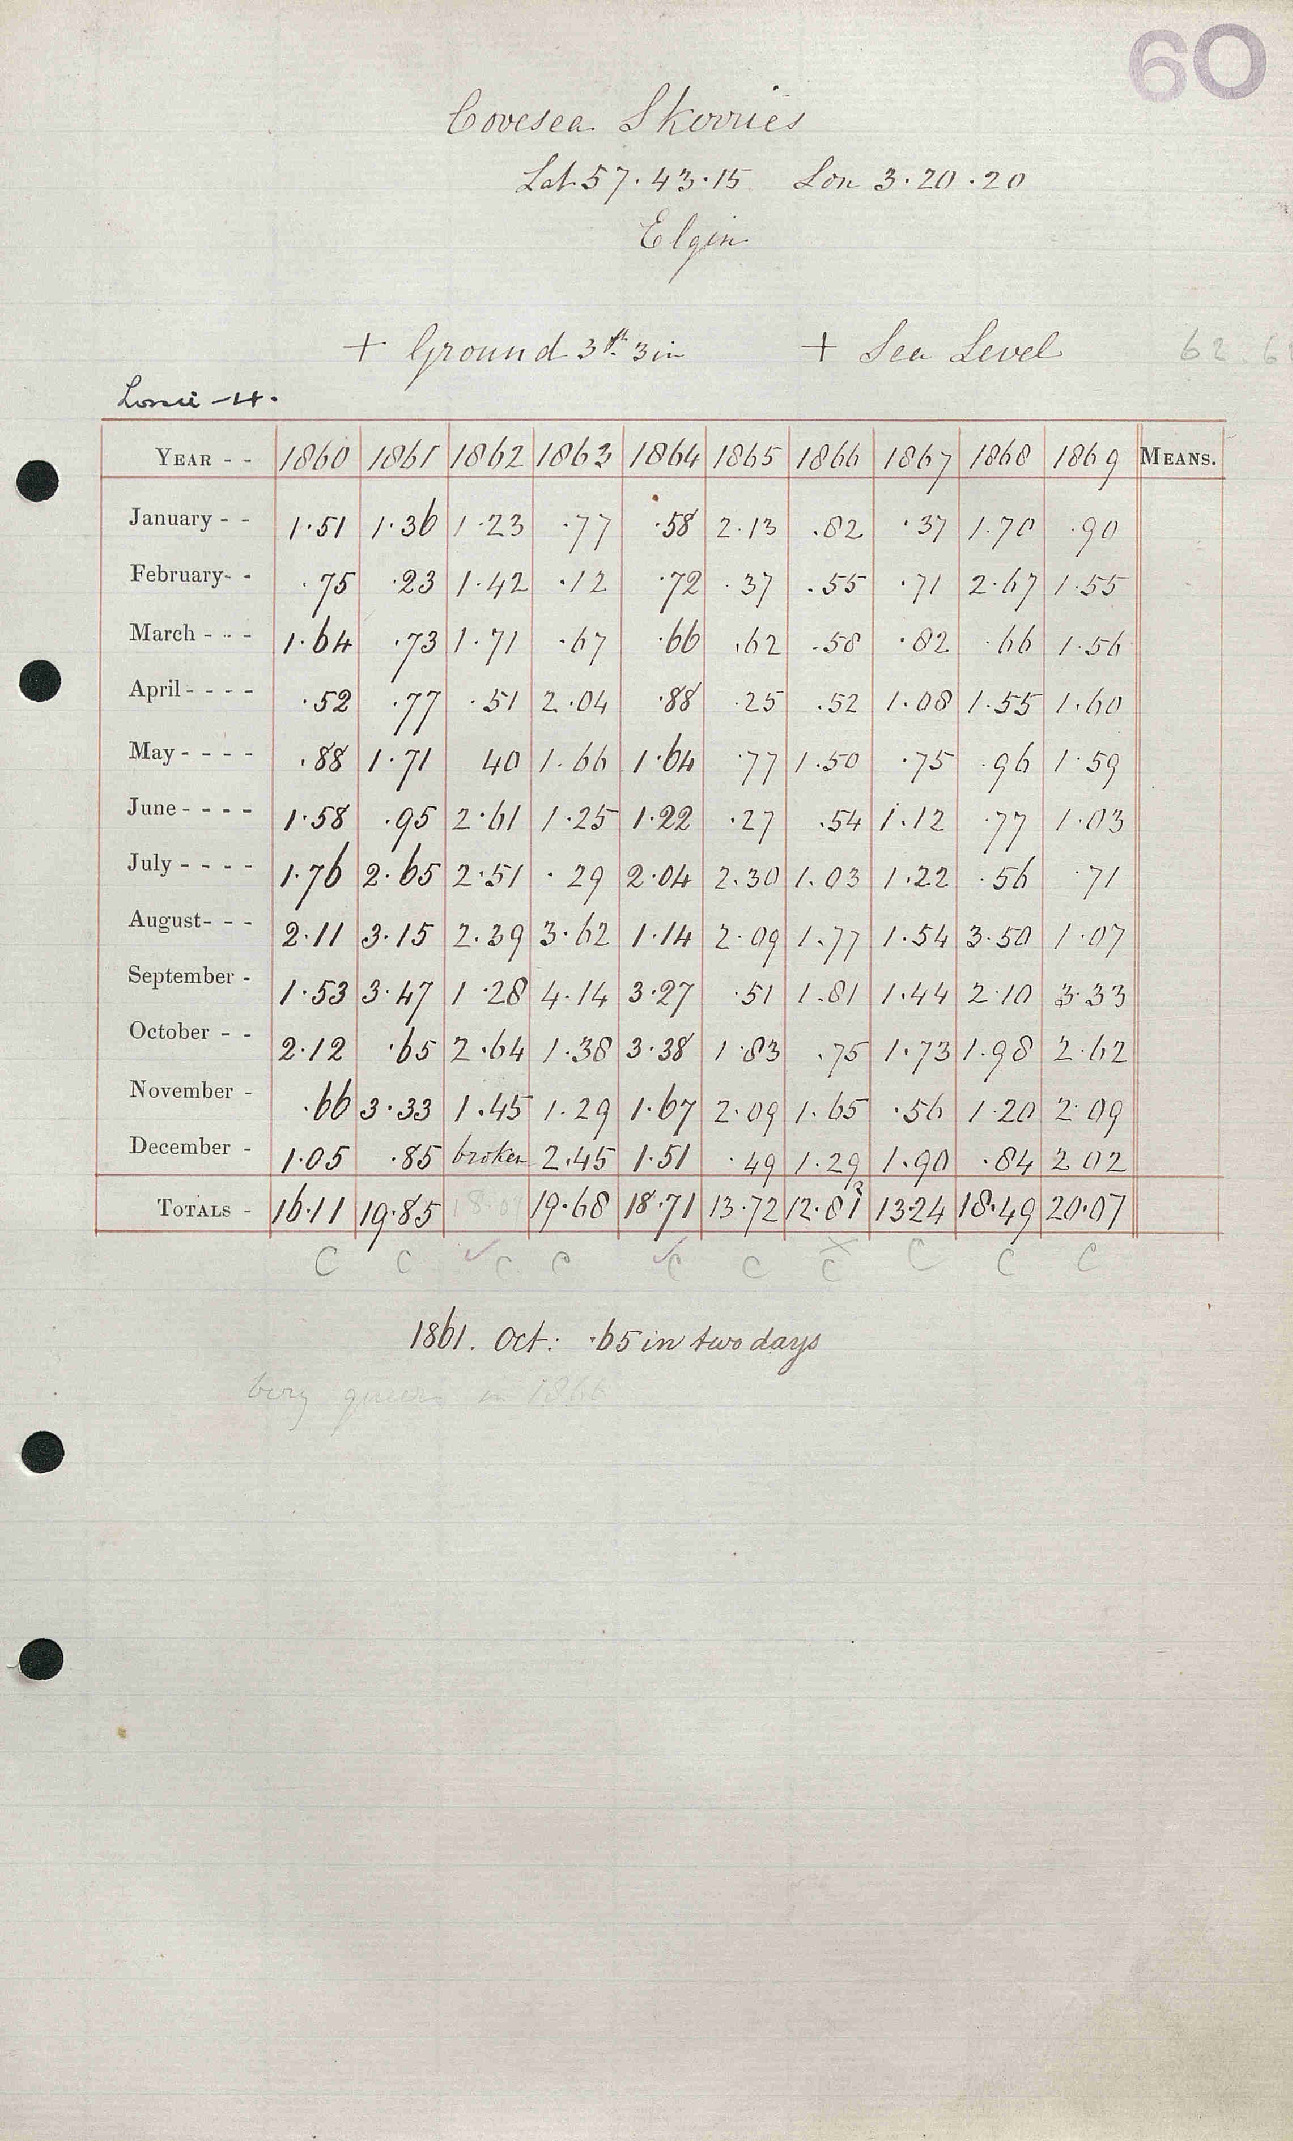 60
Covesea Skerries
Lat 57.43.15 Lon 3.20.20
Elgin
+ Ground 3ft. 3in + Sea Level 62.6
Lossie H.
YEAR - - 1860 1861 1862 1863 1864 1865 1866 1867 1868 1869 MEANS.
January - - 1.51 1.36 1.23 .77 .58 2.13 .82 .37 1.70 .90
February- - .75 .23 1.42 .12 .72 .37 .55 .71 2.67 1.55
March - - - 1.64 .73 1.71 .67 .66 .62 .58 .82 .66 1.56
April - - - - .52 .77 .51 2.04 .88 .25 .52 1.08 1.55 1.60
May - - - - .88 1.71 40 1.66 1.64 .77 1.50 .75 .96 1.59
June - - - - 1.58 .95 2.61 1.25 1.22 .27 .54 1.12 .77 1.03
July - - - - 1.76 2.65 2.51 .29 2.04 2.30 1.03 1.22 .56 .71
August- - - 2.11 3.15 2.39 3.62 1.14 2.09 1.77 1.54 3.50 1.07
September - 1.53 3.47 1.28 4.14 3.27 .51 1.81 1.44 2.10 3.33
October - - 2.12 .65 2.64 1.38 3.38 1.83 .75 1.73 1.98 2.62
November - .66 3.33 1.45 1.29 1.67 2.09 1.65 .56 1.20 2.09
December - 1.05 .85 broken 2.45 1.51 .49 1.29 1.90 .84 2 02
TOTALS - 16.11 19.85 19.68 18.71 13.72 12.81 13.24 18.49 20.07
C C C C C C C C C C
1861. Oct: .65 in two days
in 1866